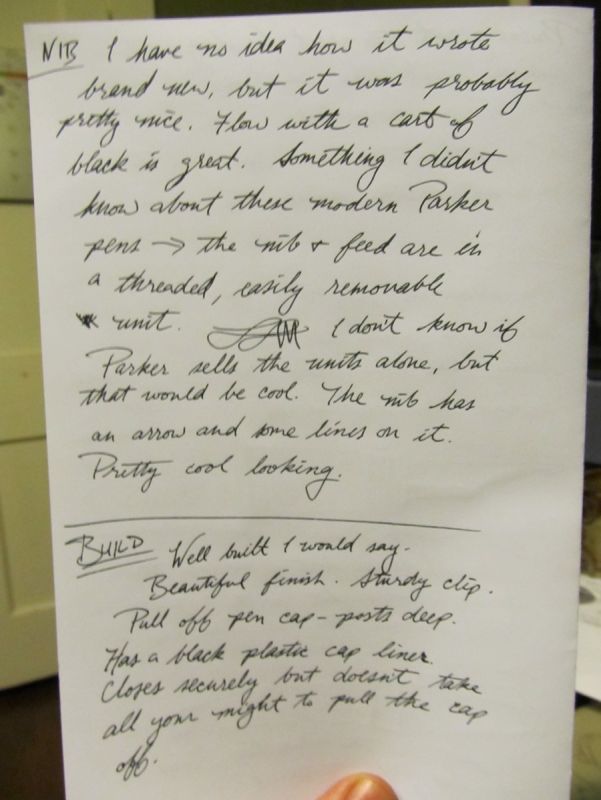 NIB I have no idea how it wrote
brand new, but it was probably
pretty nice. Flow with a cart of
black is great. Something I didn't
know about these modern Parker
pens → the nib + feed are in
a threaded, easily removable
unit. I don't know if
Parker sells the units alone, but
that would be cool. The nib has
an arrow and some lines on it.
Pretty cool looking.
BUILD Well built I would say.
Beautiful finish. Sturdy clip.
Pull off pen cap - posts deep.
Has a black plastic cap liner.
Closes securely but doesn't take
all your might to pull the cap
off.